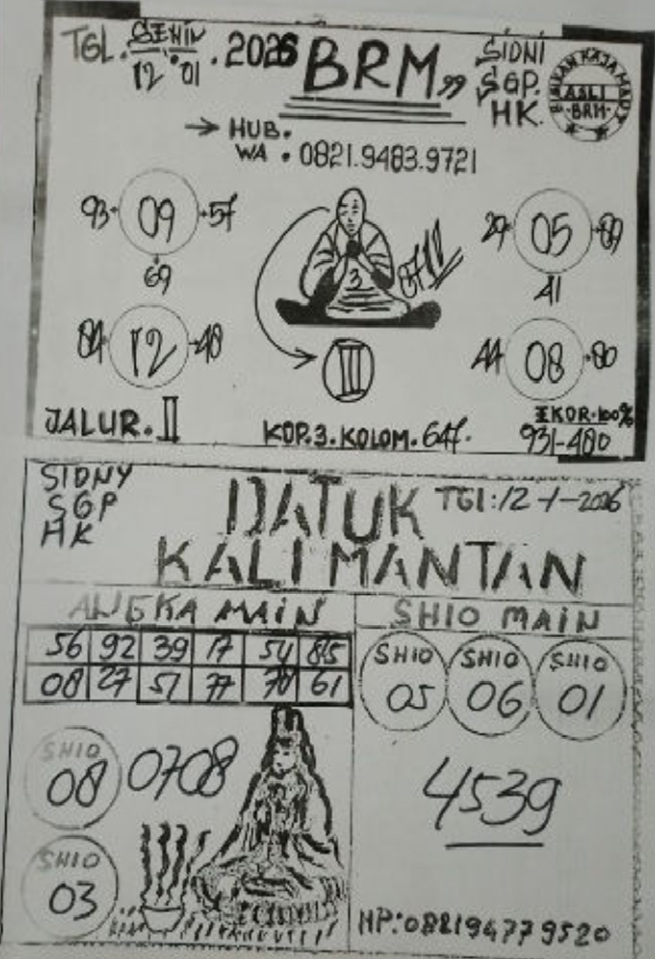 TGL. SENIN
12 01 . 2026
BRM,,
SIDNI
SGP.
HK.
ASLI
BRM
→ HUB.
WA . 0821.9483.9721
93 · 09 · 57
69
29 · 05 · 89
41
3
0712
84 · 12 · 48
III
44 · 08 · 80
JALUR. II
KOP. 3. KOLOM. 647.
EKOR. 100%
931-480
SIDNY
SGP
HK
DATUK
KALIMANTAN
TGl: 12 -1-2026
ANGKA MAIN
SHIO MAIN
56 92 39 17 54 85
08 27 51 77 70 61
SHIO
05
SHIO
06
SHIO
01
SHIO
08
0708
4539
SHIO
03
HP: 088194779520